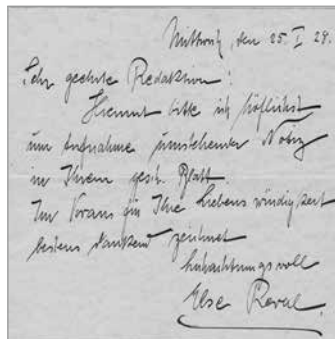 Mittwoch, den 25. I 29.
Sehr geehrte Redaktion!
Hiemit bitte ich höflichst
um Aufnahme umstehender Notiz
in Ihrem gesch. Blatt.
Im Voraus für Ihre Liebenswürdigkeit
bestens dankend zeichnet
hochachtungsvoll
Else Reval.